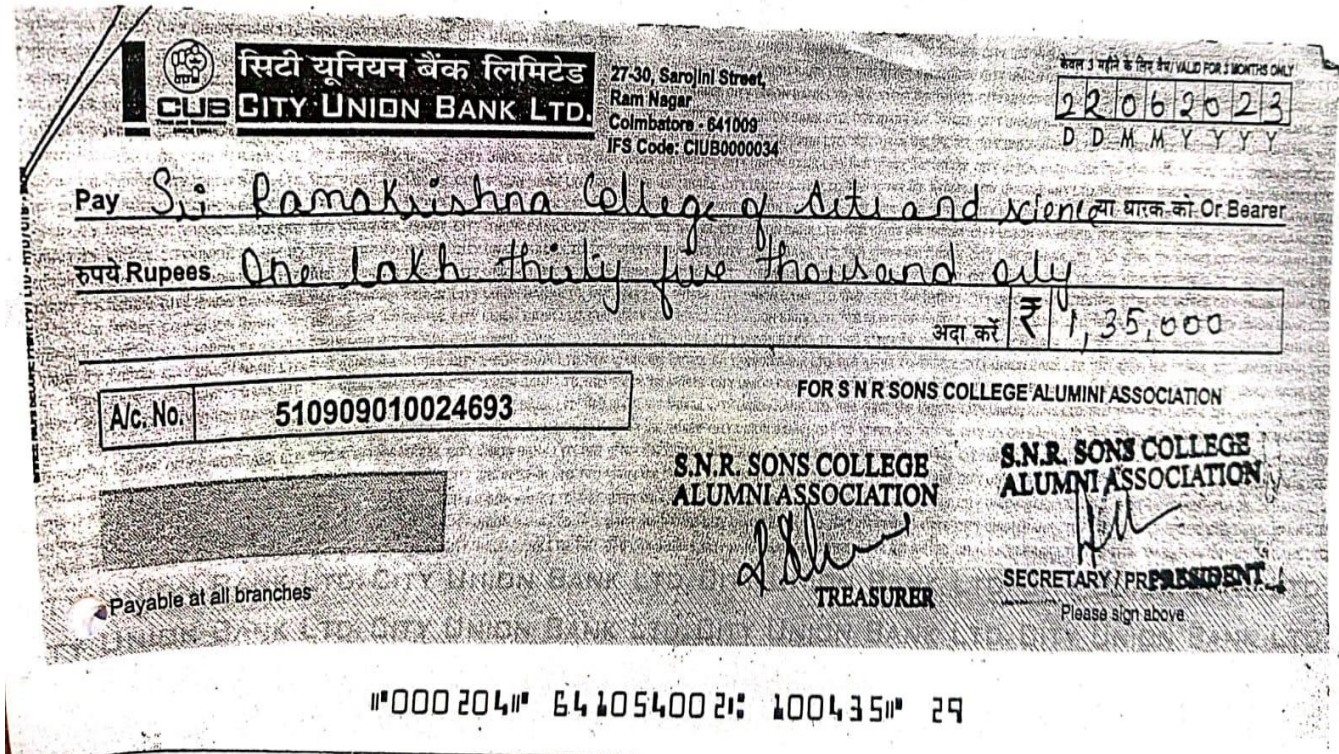 सिटी यूनियन बैंक लिमिटेड
CUB CITY UNION BANK LTD.
27-30, Sarojini Street,
Ram Nagar
Coimbatore - 641009
IFS Code: CIUB0000034
केवल 3 महीने के लिए वैध/VALID FOR 3 MONTHS ONLY
22062023
D D M M Y Y Y Y
Pay Sri Ramakrishna College of Arts and science या धारक को Or Bearer
रुपये Rupees One lakh thirty five thousand only
अदा करें ₹ 1,35,000
A/c. No. 510909010024693
FOR S N R SONS COLLEGE ALUMINI ASSOCIATION
S.N.R. SONS COLLEGE
ALUMNI ASSOCIATION
TREASURER
S.N.R. SONS COLLEGE
ALUMNI ASSOCIATION
SECRETARY / PRESIDENT
Please sign above
Payable at all branches
⑈000204⑈ 641054002⑆ 100435⑈ 29